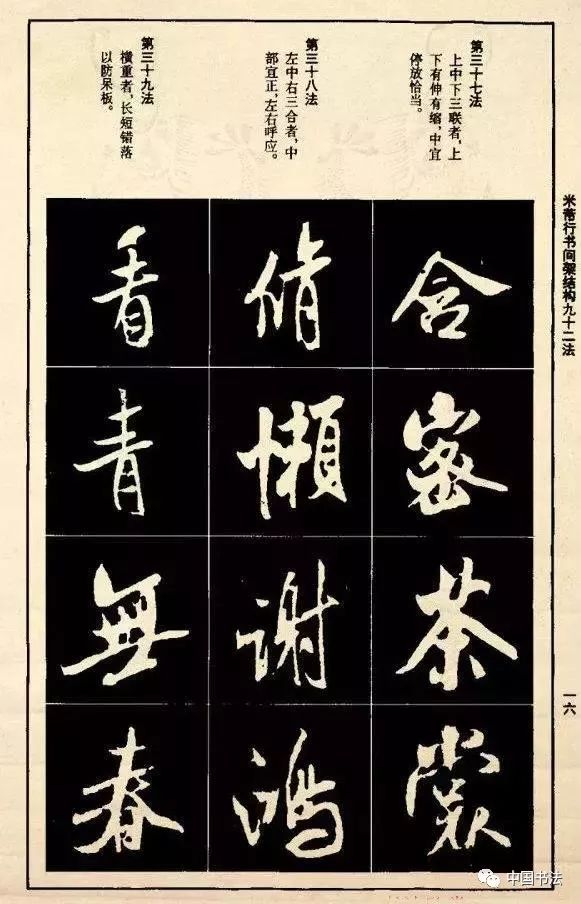 米芾行书间架结构九十二法
一六
第三十七法
上中下三联者，上
下有伸有缩，中宜
停放恰当。
第三十八法
左中右三合者，中
部宜正，左右呼应。
第三十九法
横重者，长短错落
以防呆板。
含密茶裳
脩懶謝鴻
看青無春
中国书法